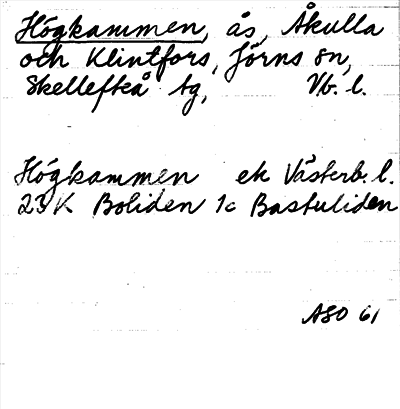 Högkammen, ås, Åkulla
och Klintfors, Jörns sn,
Skellefteå tg, Vb. l.
Högkammen ek Västerb. l.
23 K Boliden 1c Bastuliden
ASO 61